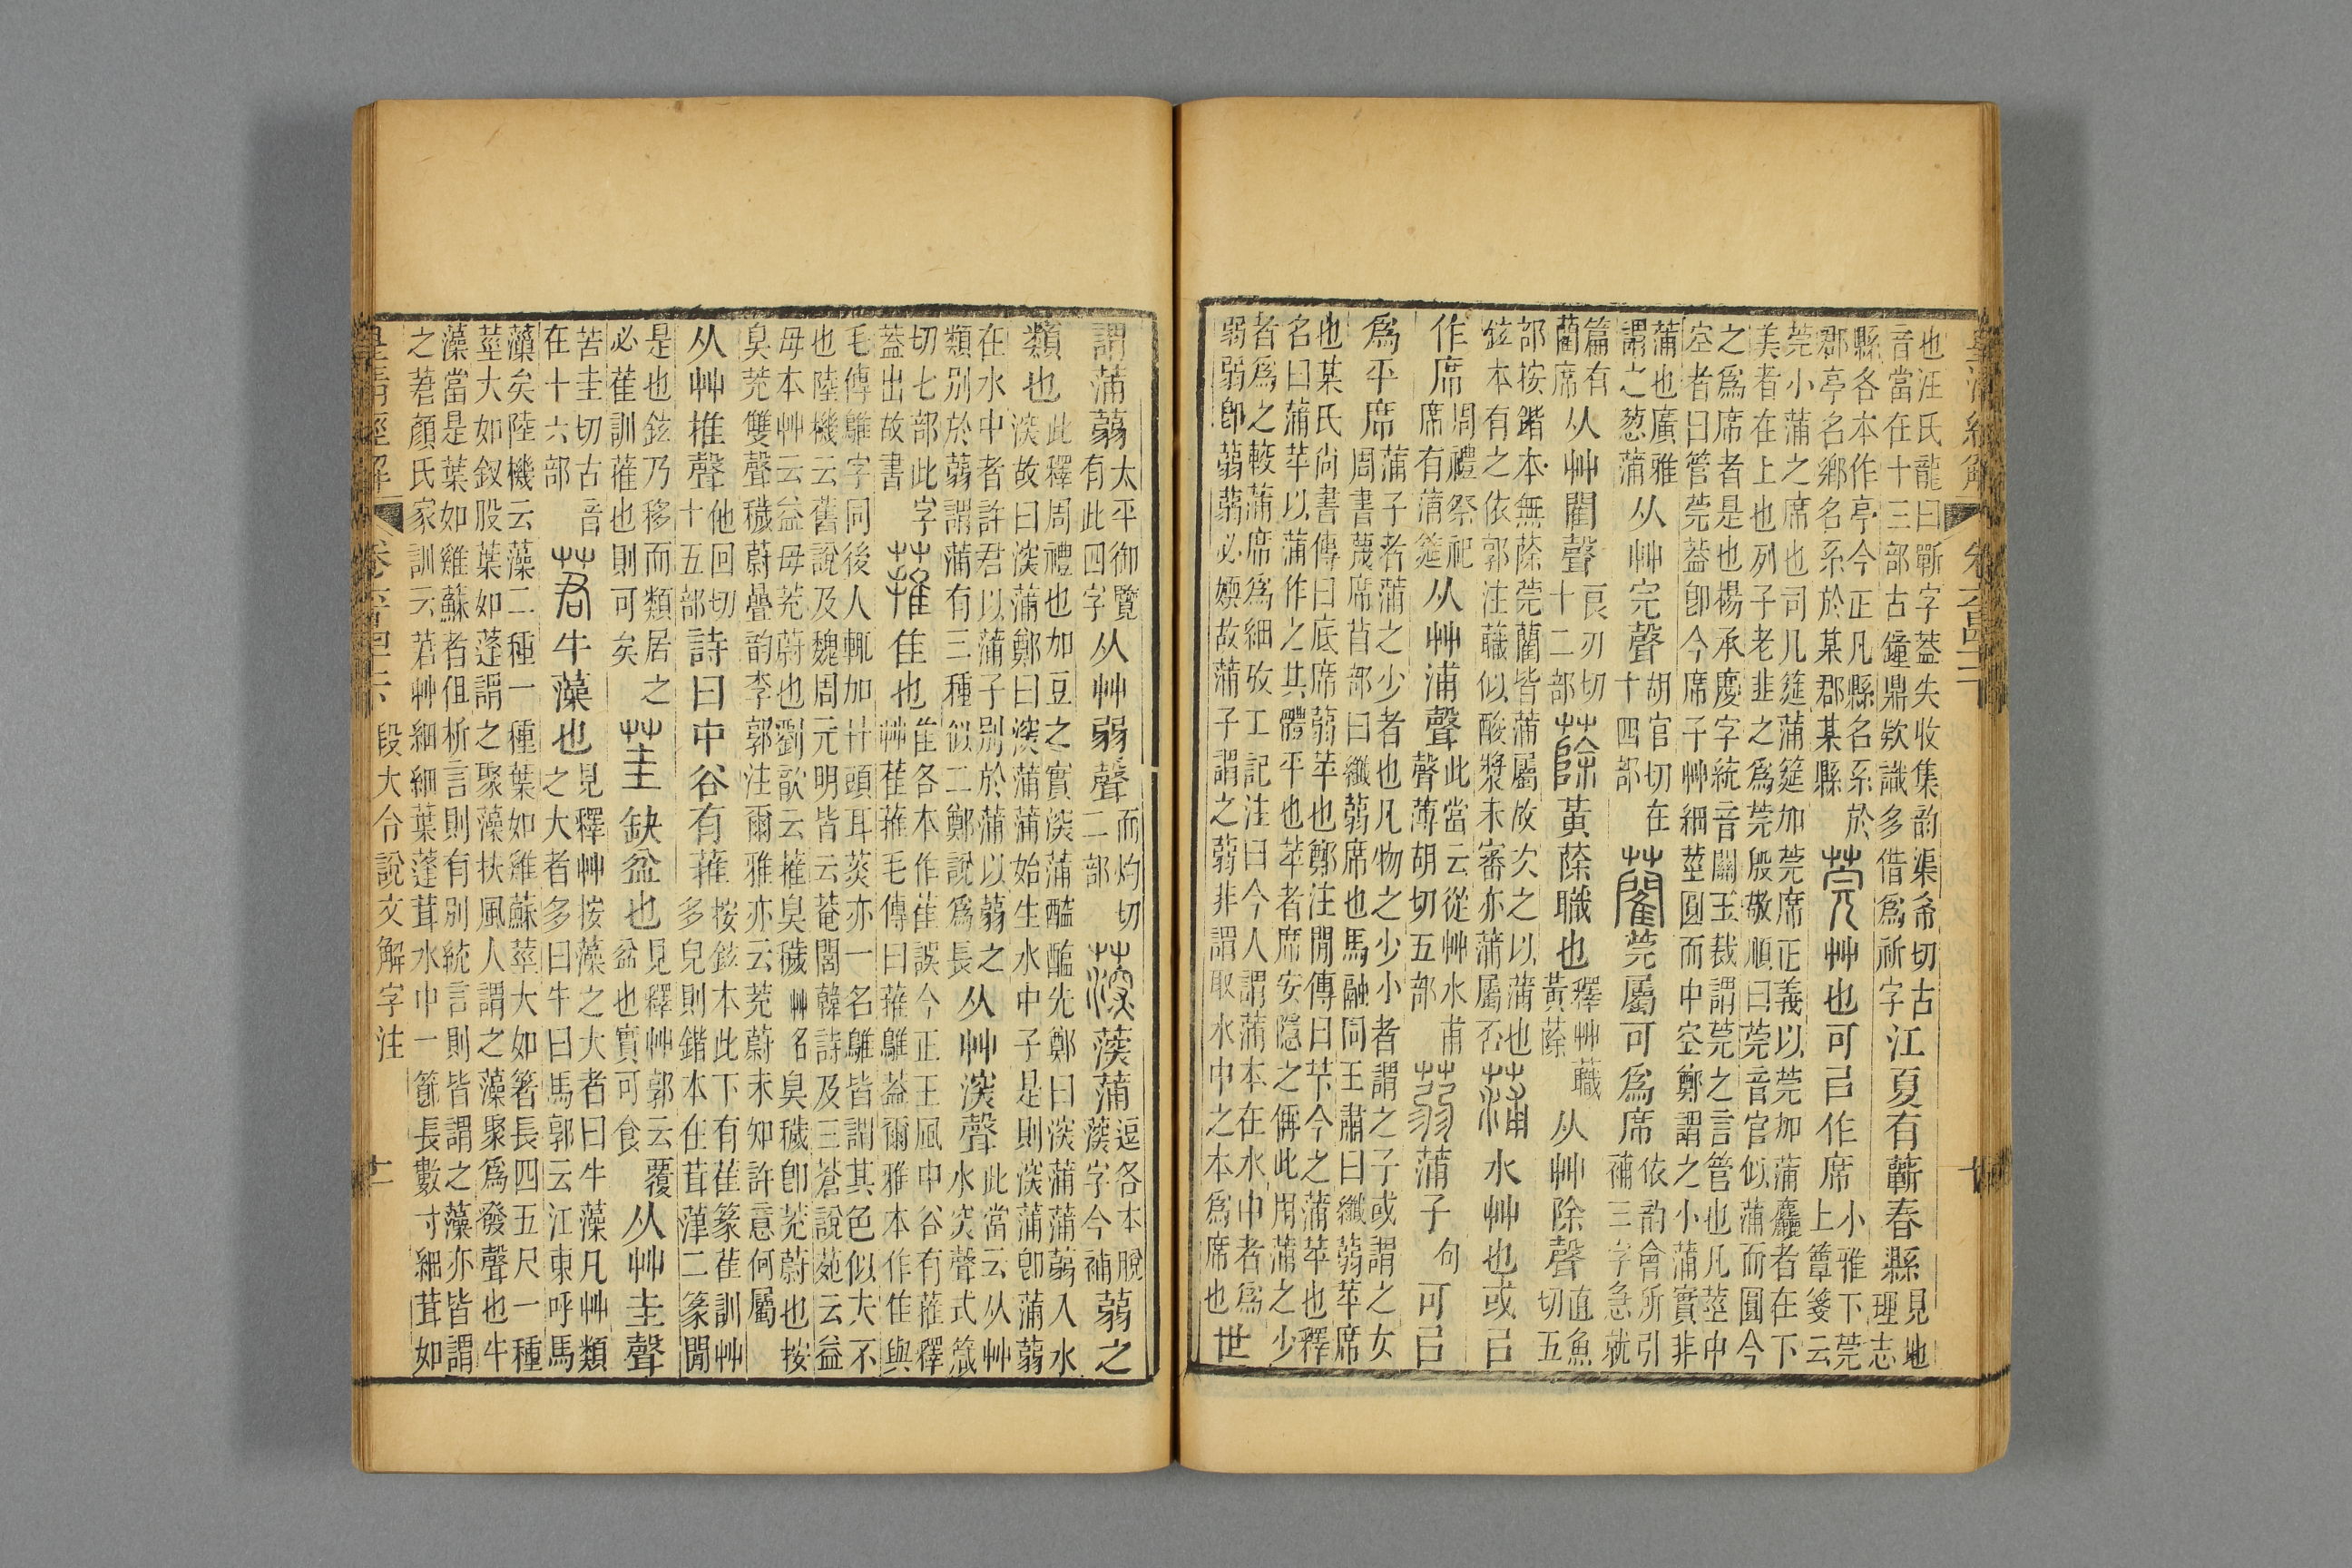 也汪氏龍曰蘄字葢失收集韵渠希切古
音當在十三部古鐘鼎欵識多借爲祈字江夏有蘄春縣見地
理志
縣各本作亭今正凡縣名系於
郡亭名鄉名系於某郡某縣莞艸也可㠯作席小雅下莞
上簟箋云
莞小蒲之席也司几筵蒲筵加莞席正義以莞加蒲麤者在下
美者在上也列子老韭之爲莞殷敬順曰莞音官似蒲而圓今
之爲席者是也楊承慶字統音關玉裁謂莞之言管也凡莖中
空者曰管莞葢卽今席子艸細莖圓而中空鄭謂之小蒲實非
蒲也廣雅
謂之葱蒲从艸完聲胡官切在
十四部藺莞屬可爲席依韵會所引
補三字急就
篇有
藺席从艸閵聲良刃切
十二部蒢黃蒢職也釋艸蘵
黃蒢从艸除聲直魚
切五
部按鍇本無蒢莞藺皆蒲屬故次之以蒲也
鉉本有之依郭注蘵似酸漿未審亦蒲屬否蒲水艸也或㠯
作席周禮祭祀
席有蒲筵从艸浦聲此當云從艸水甫
聲薄胡切五部蒻蒲子句可㠯
爲平席蒲子者蒲之少者也凡物之少小者謂之子或謂之女
周書蔑席苜部曰纖蒻席也馬融同王肅曰纖蒻苹席
也某氏尚書傳曰底席蒻苹也鄭注閒傳曰芐今之蒲苹也釋
名曰蒲苹以蒲作之其體平也苹者席安隱之偁此用蒲之少
者爲之較蒲席爲細攷工記注曰今人謂蒲本在水中者爲
弱弱卽蒻蒻必媆故蒲子謂之蒻非謂取水中之本爲席也世
謂蒲蒻太平御覽
有此四字从艸弱聲而灼切
二部蒤蒲逗各本脫
蒤字今補蒻之
類也此釋周禮也加豆之實深蒲醓醢先鄭曰深蒲蒲蒻入水
深故曰深蒲鄭曰深蒲蒲始生水中子是則深蒲卽蒲蒻
在水中者許君以蒲子別於蒲以蒻之
類別於蒻謂蒲有三種似二鄭說爲長从艸深聲此當云从艸
水罙聲式箴
切七部此字
葢出故書蓷萑也萑各本作萑誤今正王風中谷有蓷釋
艸萑蓷毛傳曰蓷鵻葢爾雅本作隹與
毛傳鵻字同後人輒加艸頭耳茨亦一名鵻皆謂其色似大不
也陸機云舊說及魏周元明皆云菴䕡韓詩及三蒼說苑云益
母本艸云益母茺蔚也劉歆云蓷臭穢艸名臭穢卽茺蔚也按
臭茺雙聲穢蔚疊韵李郭注爾雅亦云茺蔚未知許意何屬
从艸推聲他回切
十五部詩曰中谷有蓷按鉉本此下有萑篆萑訓艸
多皃則鍇本在茸葏二篆閒
是也鉉乃移而類居之
必萑訓蓷也則可矣茥缺盆也見釋艸郭云覆
盆也實可食从艸圭聲
苦圭切古音
在十六部莙牛藻也見釋艸按藻之大者曰牛藻凡艸類
之大者多曰牛曰馬郭云江東呼馬
藻矣陸機云藻二種一種葉如雞蘇莖大如箸長四五尺一種
莖大如釵股葉如蓬謂之聚藻扶風人謂之藻聚爲發聲也牛
藻當是葉如雞蘇者但析言則有別統言則皆謂之藻亦皆謂
之莙顏氏家訓云莙艸細細葉蓬茸水中一節長數寸細茸如
段大令說文解字注